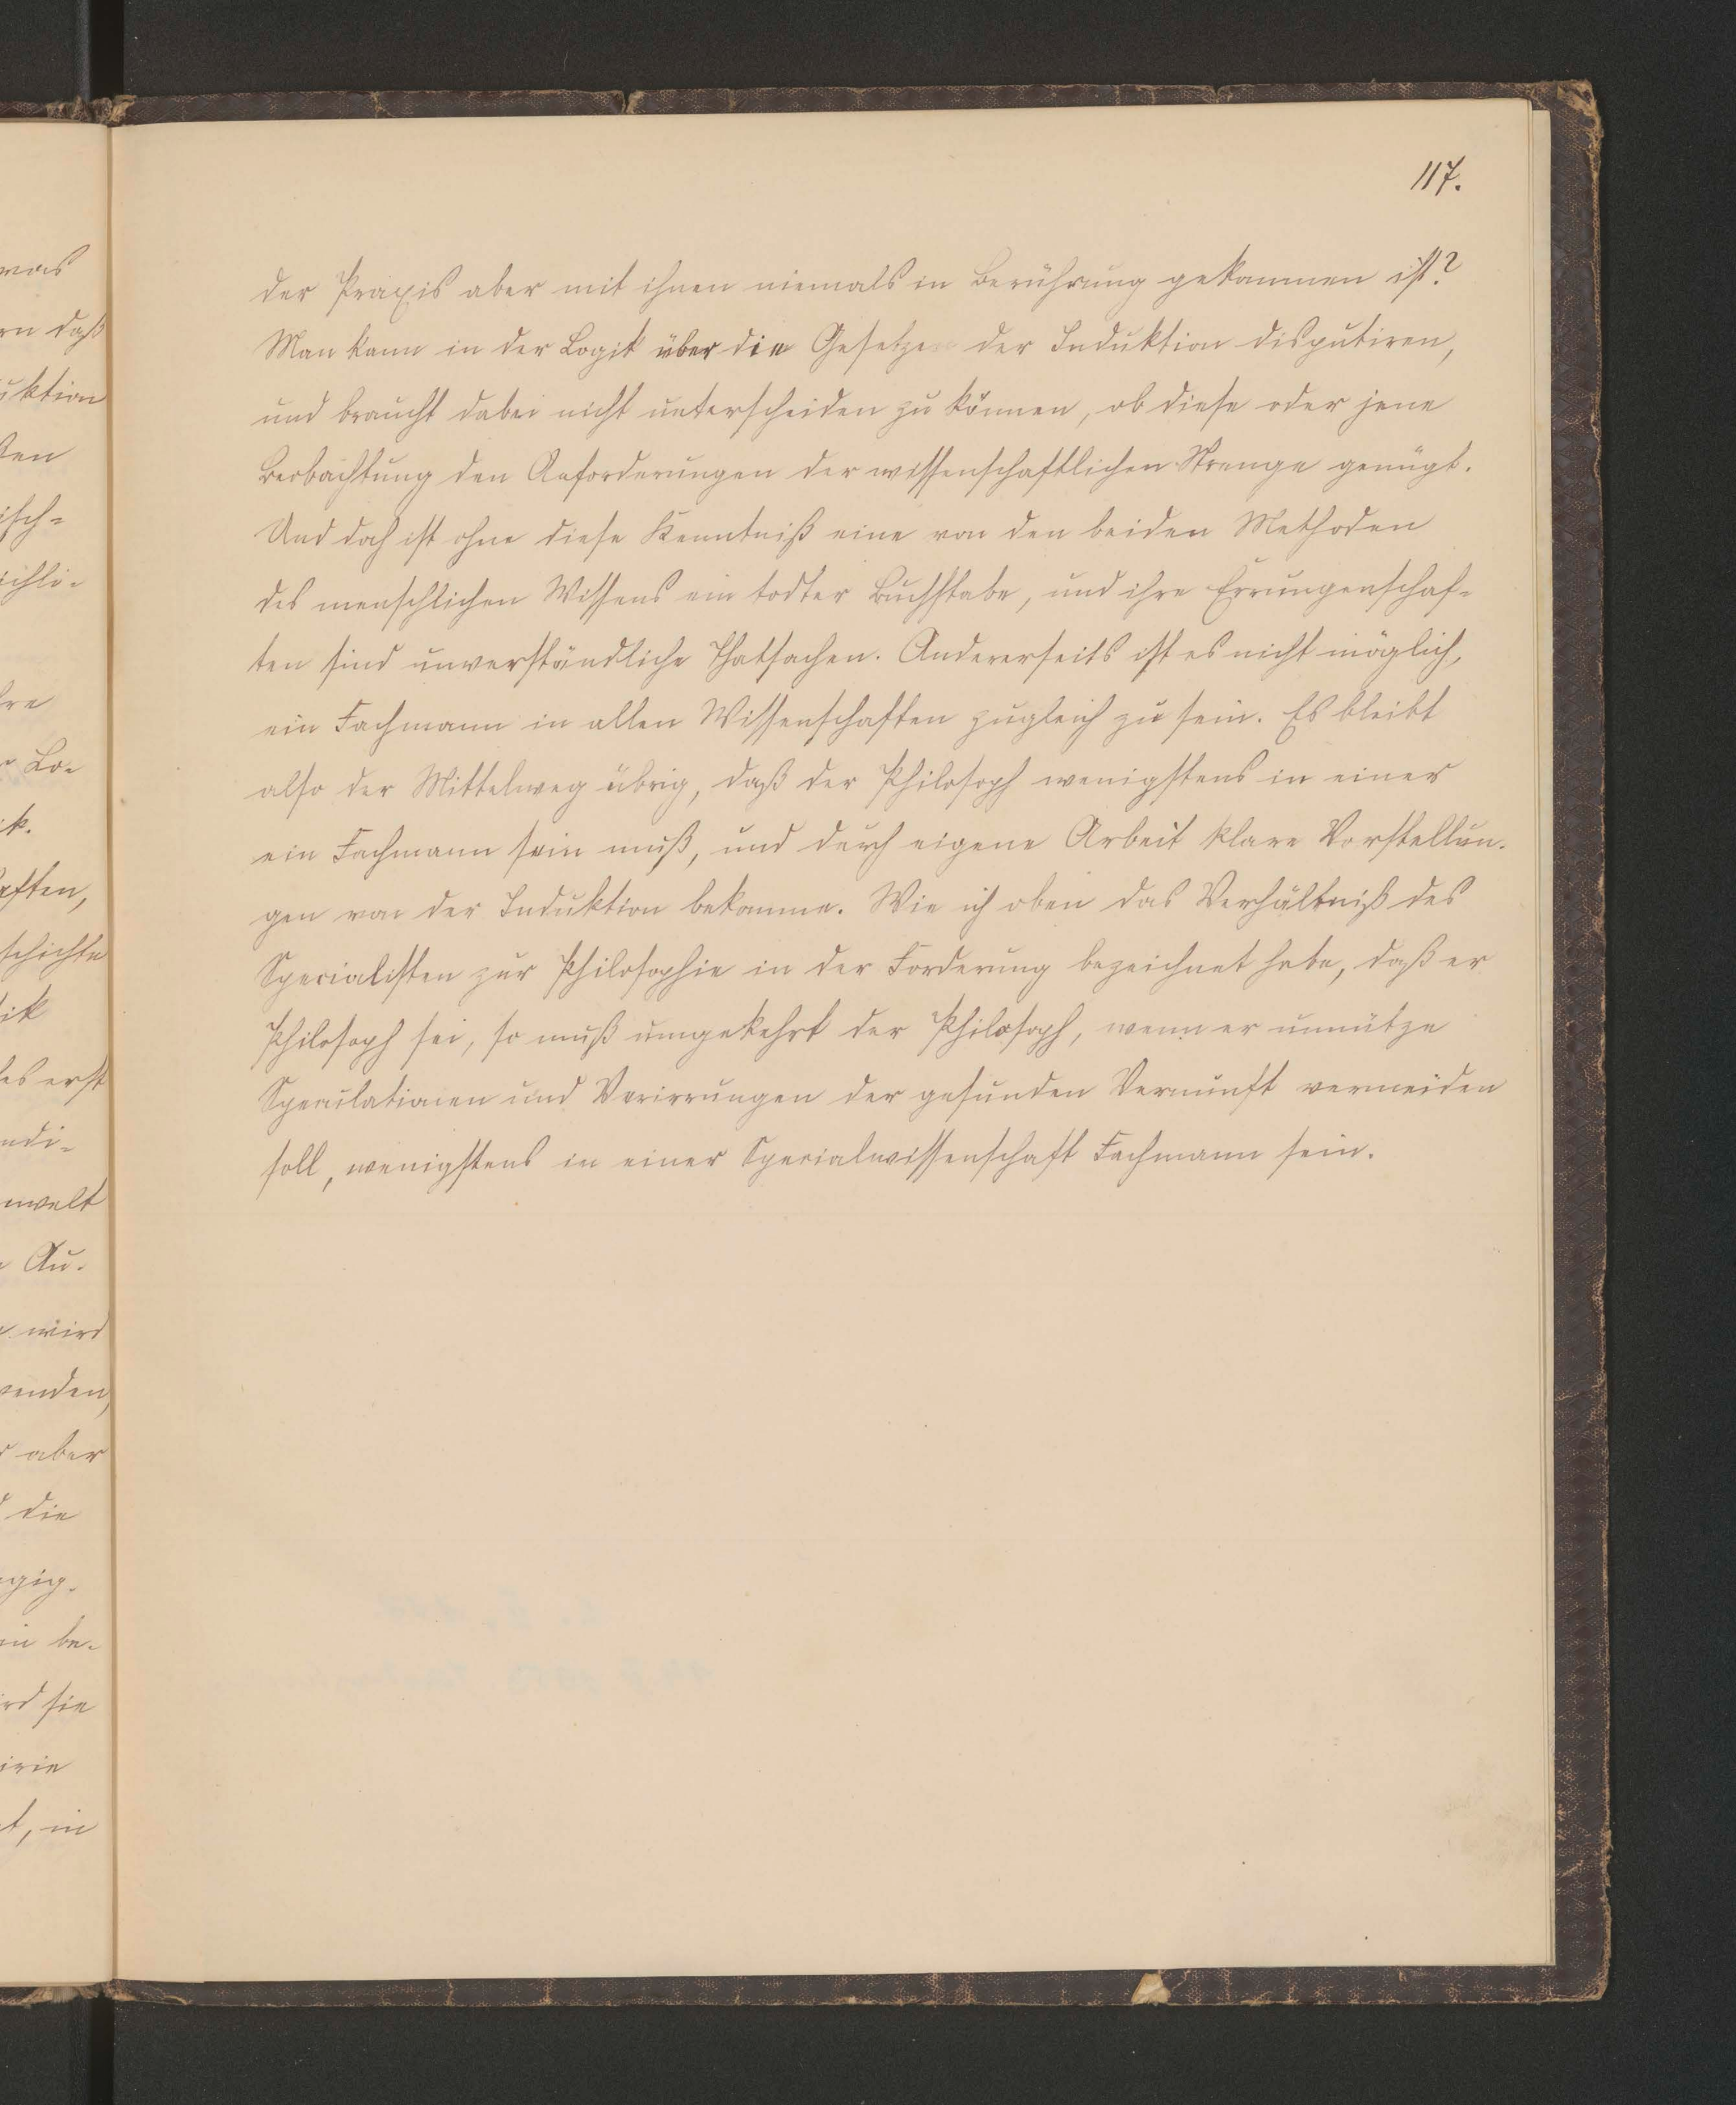 117.
der Praxis aber mit ihnen niemals in Berührung gekommen ist?
Man kann in der Logik über die Gesetze der Induktion disputiren,
und braucht dabei nicht unterscheiden zu können, ob diese oder jene
Beobachtung den Anforderungen der wissenschaftlichen Strenge genügt.
Und doch ist ohne diese Kenntniß eine von den beiden Methoden
des menschlichen Wissens ein todter Buchstabe, und ihre Errungenschaf-
ten sind unverständliche Thatsachen. Andererseits ist es nicht möglich,
ein Fachmann in allen Wissenschaften zugleich zu sein. Es bleibt
also der Mittelweg übrig, daß der Philosoph wenigstens in einer
ein Fachmann sein muß, und durch eigene Arbeit klare Vorstellun-
gen von der Induktion bekomme. Wie ich oben das Verhältniß des
Specialisten zur Philosophie in der Forderung bezeichnet habe, daß er
Philosoph sei, so muß umgekehrt der Philosoph, wenn er unnütze
Speculationen und Verirrungen der gesunden Vernunft vermeiden
soll, wenigstens in einer Specialwissenschaft Fachmann sein.